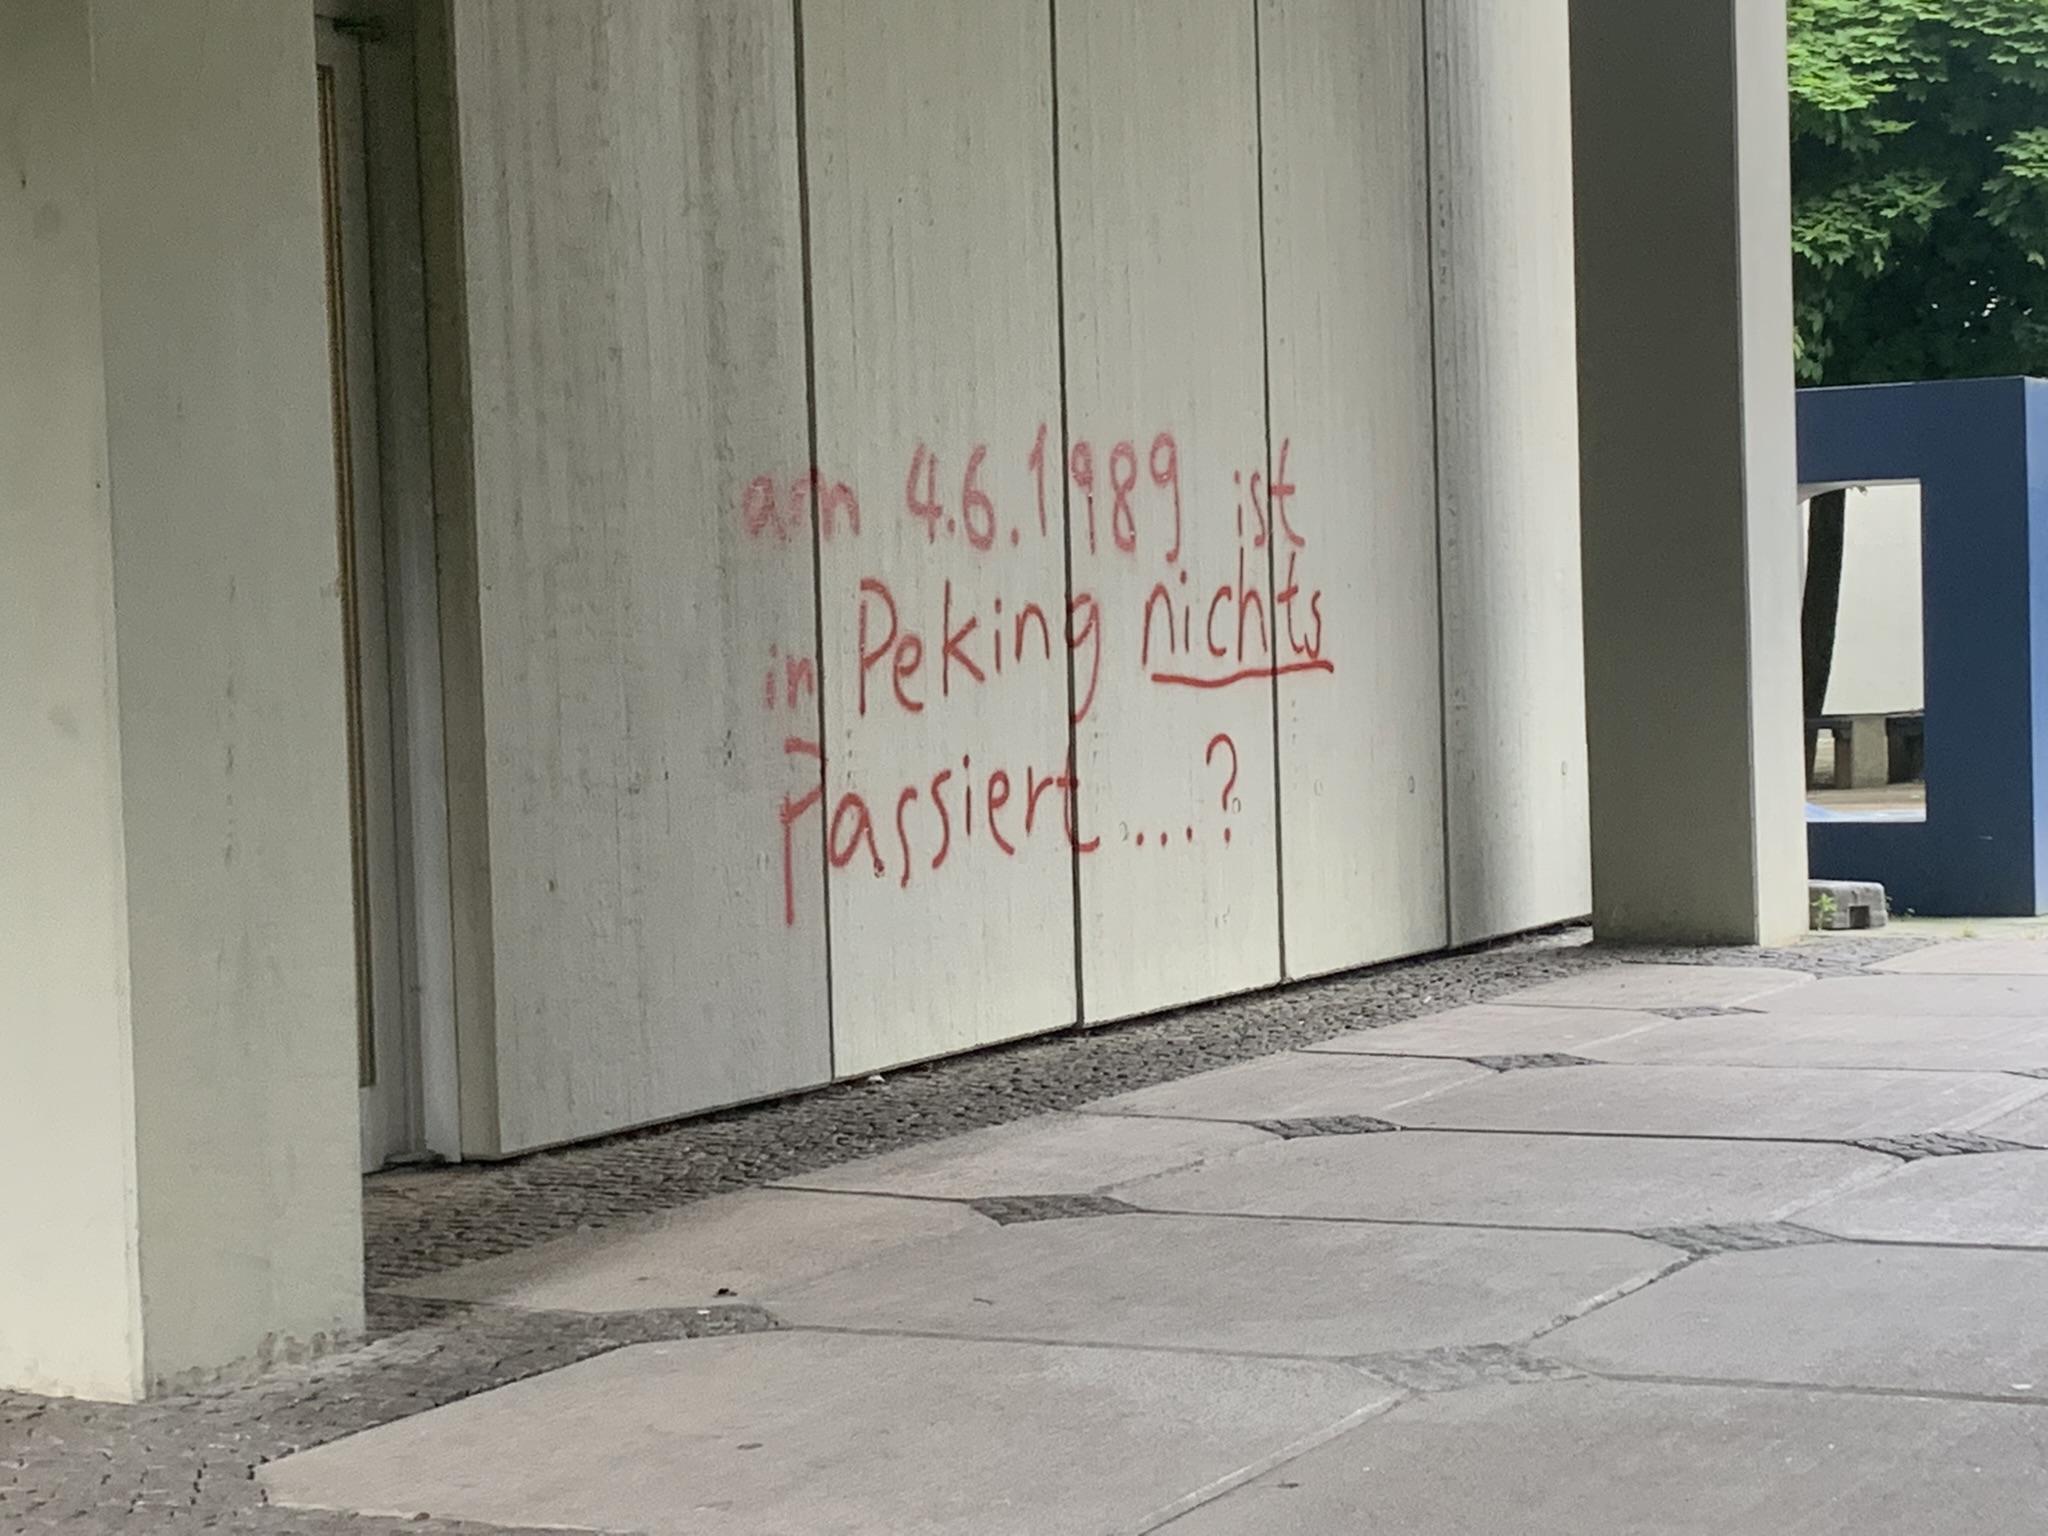 am 4.6.1989 ist
in Peking nichts
Passiert...?